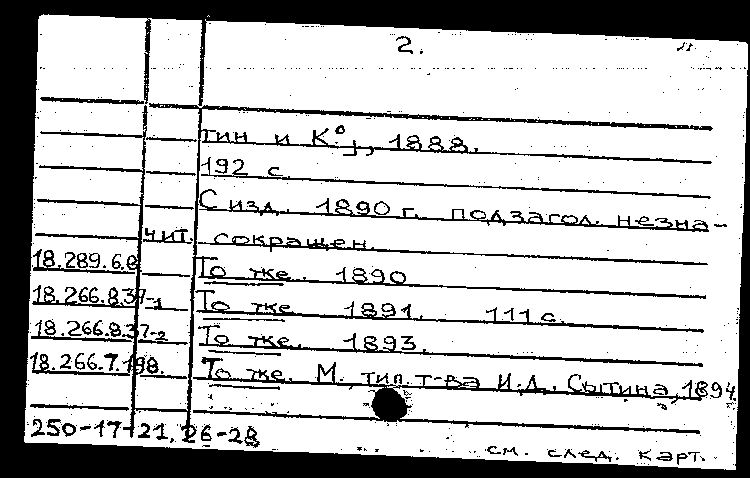 2.
тин и К°, 1888.
192 с.
С изд. 1890 г. подзагол. незна-
чит. сокращен.
18.289.6.8 То же. 1890
18.266.8.37-1 То же 1891. 111 с.
18.266.8.37-2 То же. 1893.
18.266.7.198. То же. М., тип. т-ва И.Д. Сытина, 1894
250-17-21, 26-28
см. след. карт.